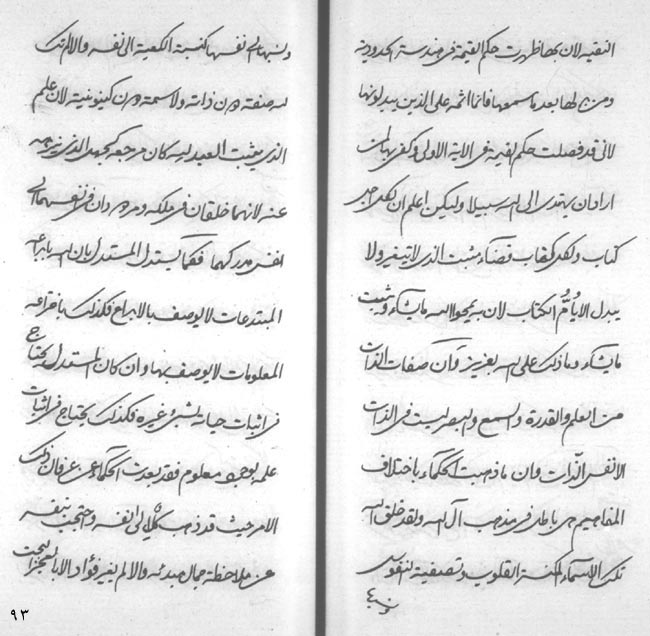 التقيه لان بها ظهرت حكم القيمة فى هندسة الحدودية
ومن بدلها بعد ما سمعها فانما اثمه على الذين يبدلونها
لانى قد فصلت حكم لقيمة فى الاية الاولى وكفى بها لمن
اراد ان يهتدى الى الله سبيلا ولكن اعلم ان لكل اجل
كتاب ولكل كتاب قضاء مثبت الذى لا يتغير ولا
يبدل الا بام الكتاب لان به يمحوا الله ما يشاء ويثبت
ما يشاء وما ذلك على الله بعزيز وان صفات الذات
من العلم والقدرة والسمع والبصر ليست فى الذات
الا نفس الذات وان ما ذهبت الحكماء باختلاف
المفاهيم هى باطل فى مذهب آل الله ولقد خلق الله
تلك الاسماء لمكنسة القلوب وتصفية النفوس
ونسبها
ونسبها الى نفسها كنسبة الكعبة الى نفسه والا لم تك
لله صفة دون ذاته ولا سمة دون كينونيته لان علم
الذى يثبت العبد لله كان مرجعه كجهل الذى ينزهه
عنه لانهما خلقان فى ملكه ومردودان فى نفسهما الى
نفس مدركهما فكما يستدل المستدل بان الله بابداعه
المبتدعات لا يوصف بالابداع فكذلك باختراعه
المعلومات لا يوصف بها وان كان المستدل يحتاج
فى اثبات حياته بشئ غيره فكذلك يحتاج فى اثبات
علمه بوجود معلوم فقد بعدت الحكماء عن عرفان ذلك
الامر حيث قد ذهب كل الى نفسه واحتجب بنفسه
عن ملاحظة جمال مبدئه والا لم يغير فؤاد الا بالعجز البحت
٩٣